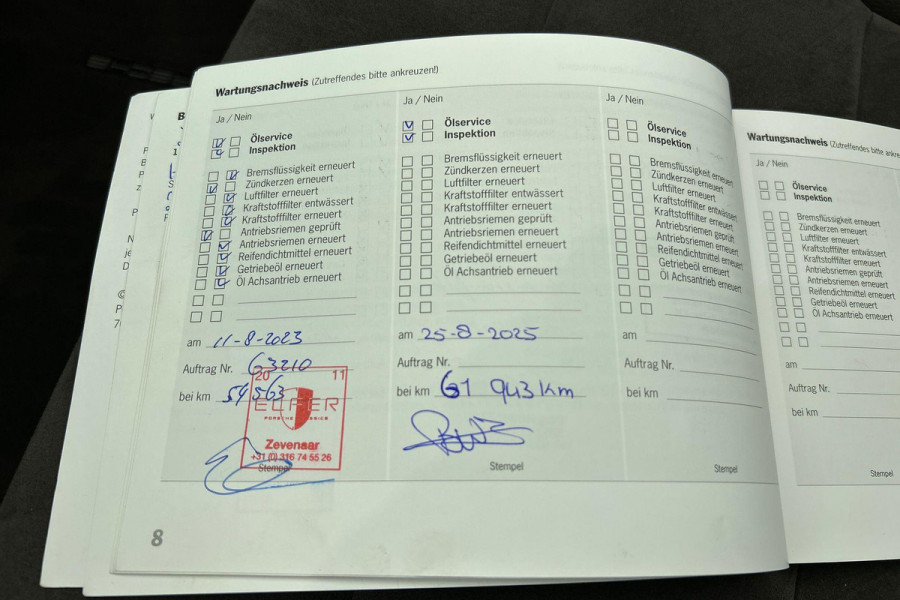 Wartungsnachweis (Zutreffendes bitte ankreuzen!)
Ja / Nein
Ölservice
Inspektion
Bremsflüssigkeit erneuert
Zündkerzen erneuert
Luftfilter erneuert
Kraftstofffilter entwässert
Kraftstofffilter erneuert
Antriebsriemen geprüft
Antriebsriemen erneuert
Reifendichtmittel erneuert
Getriebeöl erneuert
Öl Achsantrieb erneuert
am 11-8-2023
Auftrag Nr. 63210
bei km 54563
20 11
ELFER
Zevenaar
+31 (0) 316 74 55 26
Stempel
8
Ja / Nein
Ölservice
Inspektion
Bremsflüssigkeit erneuert
Zündkerzen erneuert
Luftfilter erneuert
Kraftstofffilter entwässert
Kraftstofffilter erneuert
Antriebsriemen geprüft
Antriebsriemen erneuert
Reifendichtmittel erneuert
Getriebeöl erneuert
Öl Achsantrieb erneuert
am 25-8-2025
Auftrag Nr.
bei km 61 943 km
Stempel
Ja / Nein
Ölservice
Inspektion
Bremsflüssigkeit erneuert
Zündkerzen erneuert
Luftfilter erneuert
Kraftstofffilter entwässert
Kraftstofffilter erneuert
Antriebsriemen geprüft
Antriebsriemen erneuert
Reifendichtmittel erneuert
Getriebeöl erneuert
Öl Achsantrieb erneuert
am
Auftrag Nr.
bei km
Stempel
Wartungsnachweis (Zutreffendes bitte
Ja / Nein
Ölservice
Inspektion
Bremsflüssigkeit erneuert
Zündkerzen erneuert
Luftfilter erneuert
Kraftstofffilter entwässert
Kraftstofffilter erneuert
Antriebsriemen geprüft
Antriebsriemen erneuert
Reifendichtmittel erneuert
Getriebeöl erneuert
Öl Achsantrieb erneuert
am
Auftrag Nr.
bei km
Stempel